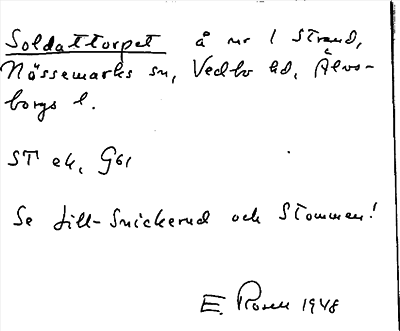 Soldattorpet å nr 1 Strand,
Nössemarks sn, Vedbo hd, Älvs-
borgs l.
ST ek, G61
Se Lill-Snickerud och Stommen!
E. Rosen 1948